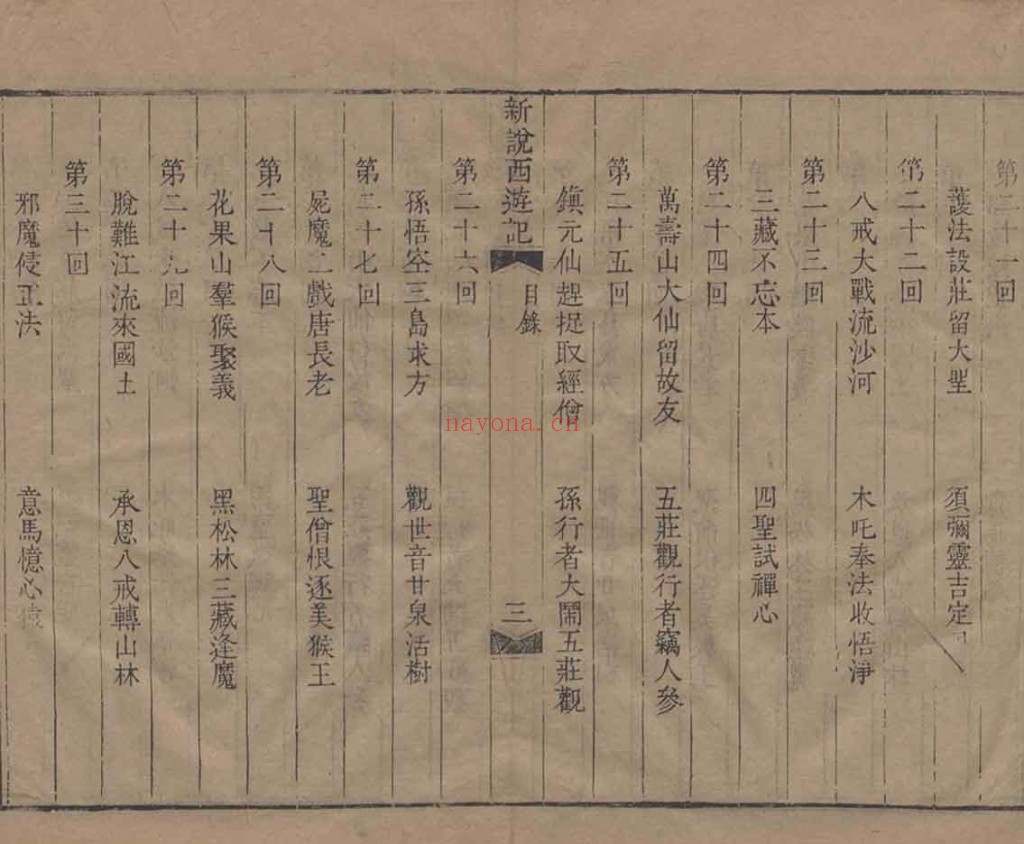 第二十一回
護法設莊留大聖　須彌靈吉定
第二十二回
八戒大戰流沙河　木吒奉法收悟淨
第二十三回
三藏不忘本　四聖試禪心
第二十四回
萬壽山大仙留故友　五莊觀行者竊人參
第二十五回
鎭元仙趕捉取經僧　孫行者大鬧五莊觀
新說西遊記
目錄
三
第二十六回
孫悟空三島求方　觀世音甘泉活樹
第二十七回
屍魔三戲唐長老　聖僧恨逐美猴王
第二十八回
花果山羣猴聚義　黑松林三藏逢魔
第二十九回
脫難江流來國土　承恩八戒轉山林
第三十回
邪魔侵正法　意馬憶心猿
nayona.cn